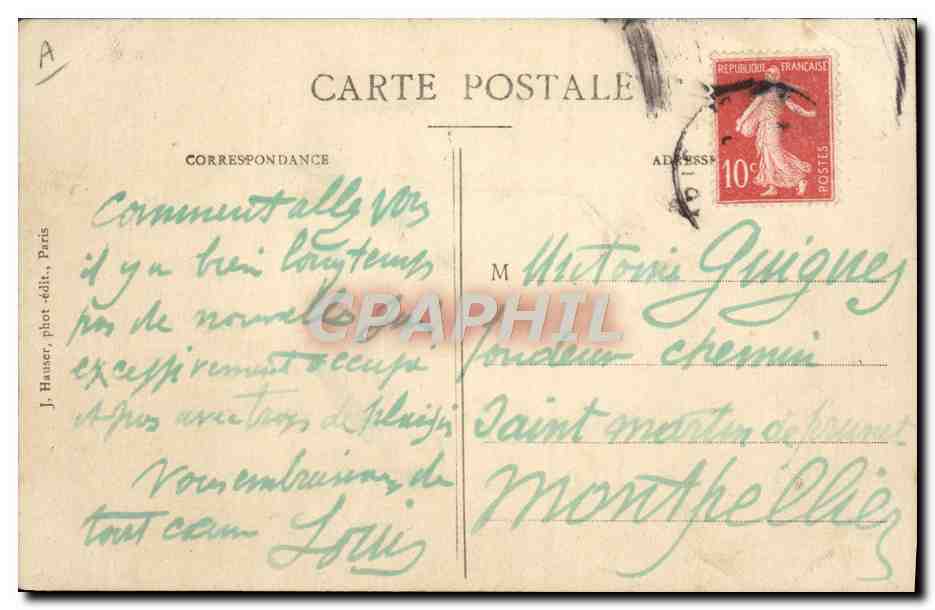 A
CARTE POSTALE
CORRESPONDANCE
ADRESSE
REPUBLIQUE FRANÇAISE
10c
POSTES
J. Hauser, phot.-édit., Paris
Comment allez vous
il y a bien longtemps
pas de nouvelles
excessivement occupé
et pas avec trop de plaisir
Vous embrassons de
tout cœur Louis
M Antoine Guigues
fondeur chemin
Saint martin de prunet
Montpellier
CPAPHIL